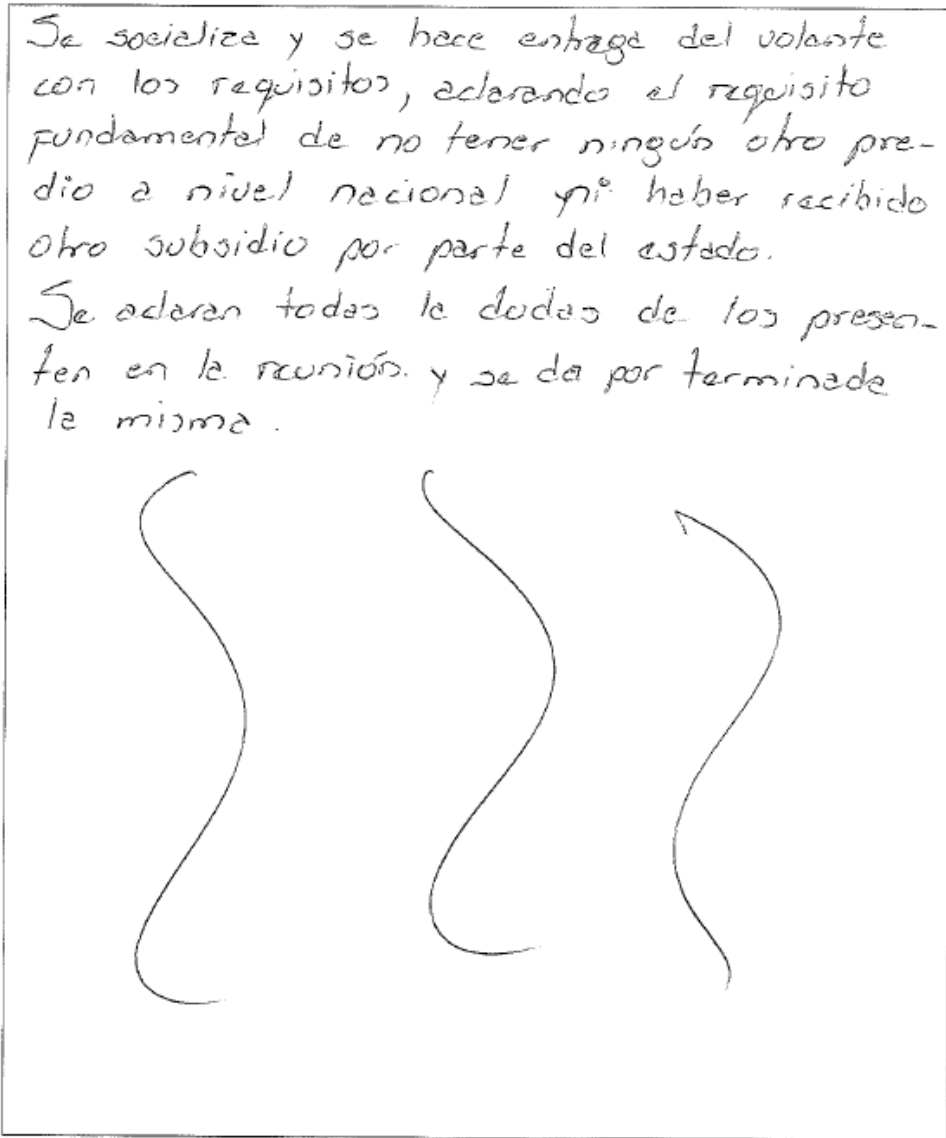 Se socializa y se hace entrega del volante
con los requisitos, aclarando el requisito
fundamental de no tener ningún otro pre-
dio a nivel nacional y ni haber recibido
otro subsidio por parte del estado.
Se aclaran todas la dudas de los presen-
ten en la reunión. y se da por terminada
la misma.